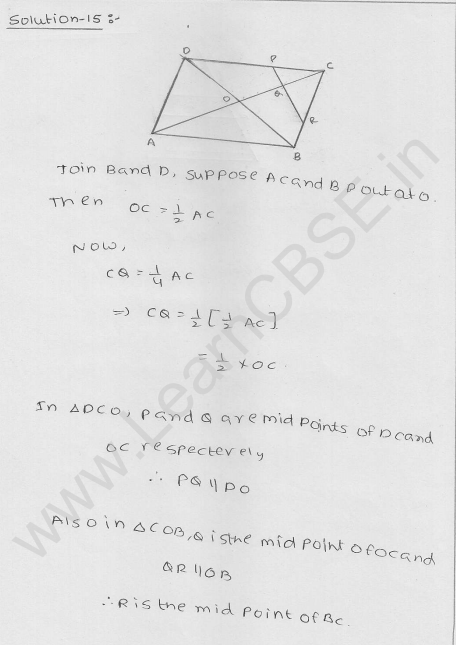 Solution-15 :-
D P C
O Q
R
A
B
Join B and D, suppose AC and BD out at O.
Then OC = 1/2 AC
NOW,
CQ = 1/4 AC
=> CQ = 1/2 [1/2 AC]
= 1/2 × OC
In △DCO, P and Q are mid points of DC and
OC respecterely
∴ PQ || DO
Also in △COB, Q is the mid point of OC and
QR || OB
∴ R is the mid point of BC.
www.LearnCBSE.in